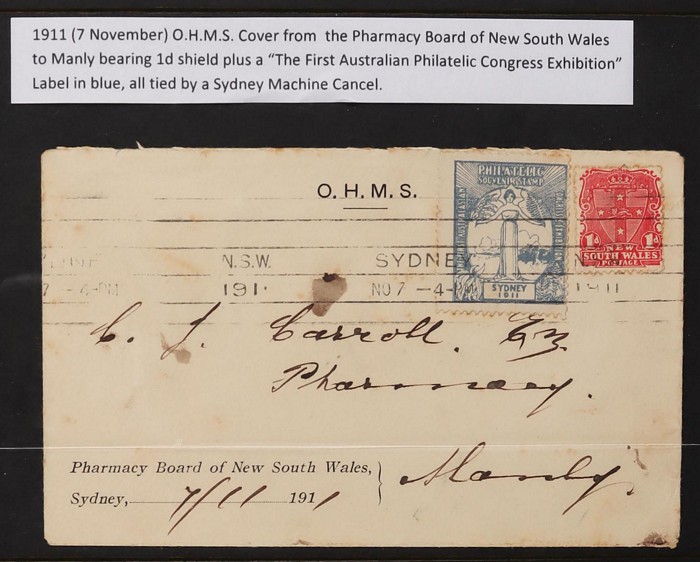 1911 (7 November) O.H.M.S. Cover from the Pharmacy Board of New South Wales
to Manly bearing 1d shield plus a “The First Australian Philatelic Congress Exhibition”
Label in blue, all tied by a Sydney Machine Cancel.
O. H. M. S.
PHILATELIC
SOUVENIR STAMP
SYDNEY
1911
1d 1d
NEW
SOUTH WALES
POSTAGE
N.S.W. SYDNEY
7 —4-PM 191 NO 7 —4-PM 1911
C. J. Carroll.
Pharmacy.
Manly.
Pharmacy Board of New South Wales,
Sydney, 7/11 1911